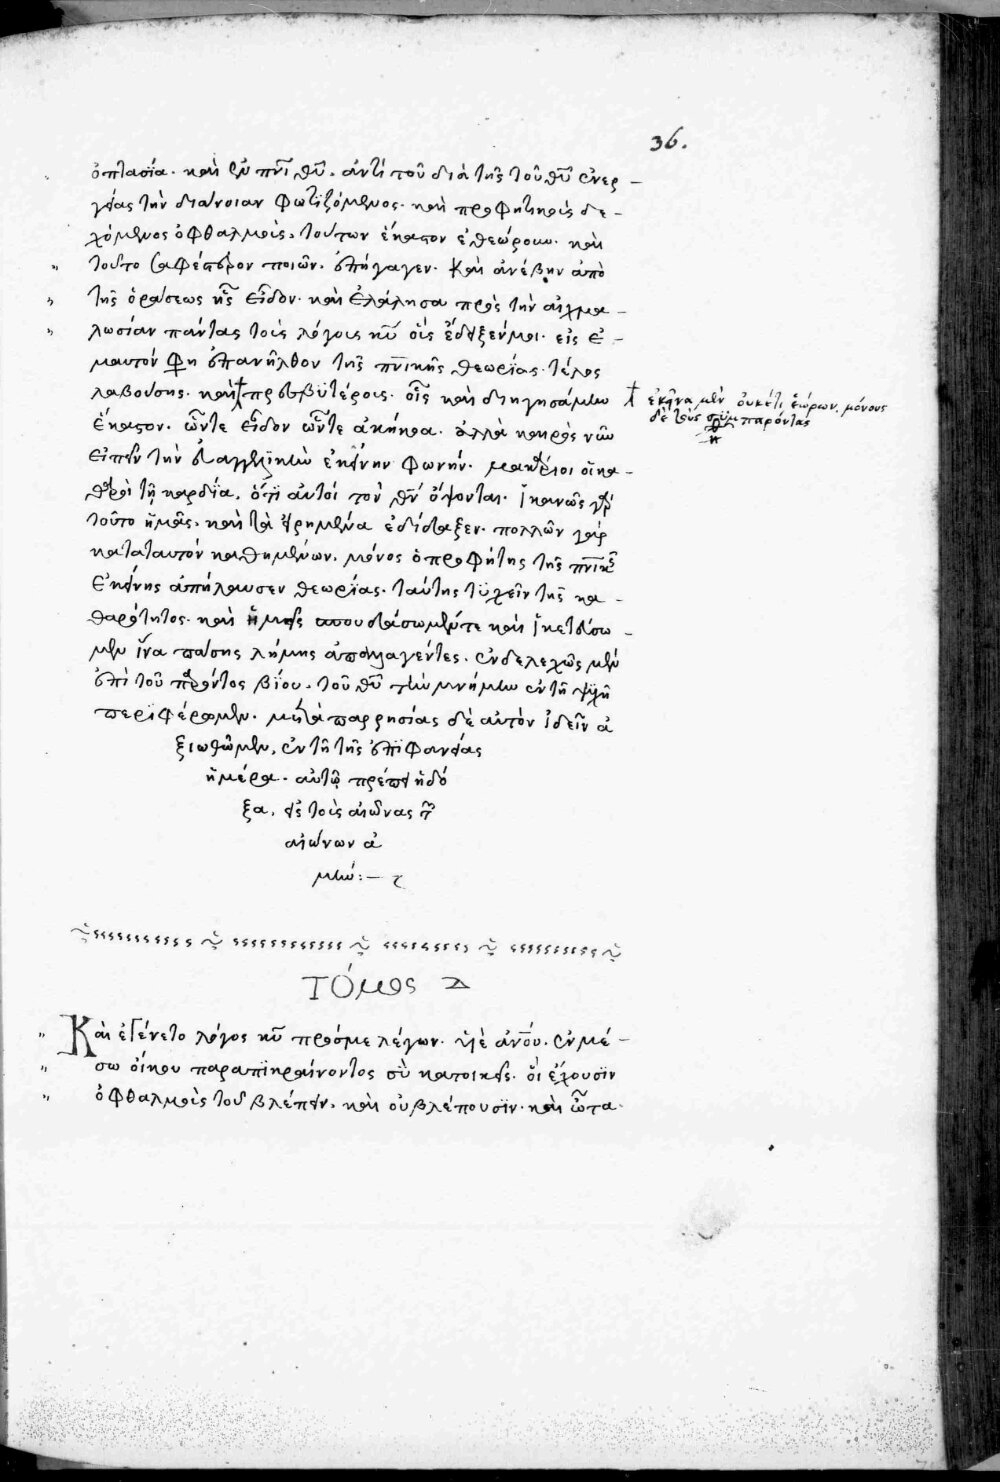 36.
ὀπτασία. καὶ ἐν πνι θῦ. ἀντὶ τοῦ διὰ τῆς τοῦ θῦ ἐνερ-
γείας τὴν διάνοιαν φωτιζόμενος. καὶ προφητικοῖς δε-
χόμενος ὀφθαλμοῖς, τούτων ἕκαστον ἐθεώρουν. καὶ
τοῦτο σαφέστερον ποιῶν. ἐπήγαγεν. Καὶ ἀνέβην ἀπὸ
τῆς ὁράσεως ἧς εἶδον. καὶ ἐλάλησα πρὸς τὴν αἰχμα-
λωσίαν πάντας τοὺς λόγους κῦ οὓς ἔδειξέν μοι. εἰς ἐ-
μαυτόν φη ἐπανῆλθον τῆς πνικῆς θεωρίας. τέλος
λαβούσης. καὶ πρεσβυτέροις. οἷς καὶ διηγησάμην
ἕκαστον. ὧν τε εἶδον ὧν τε ἀκήκοα. ἀλλὰ καιρὸς νῦν
εἰπεῖν τὴν εὐαγγελικὴν ἐκείνην φωνήν. μακάριοι οἱ κα-
θαροὶ τῇ καρδία, ὅτι αὐτοὶ τὸν θν ὄψονται. ἱκανῶς γὰρ
τοῦτο ἡμᾶς. καὶ τὰ εἰρημένα ἐδίδαξεν. πολλῶν γάρ
κατατ αυτόν καθημένων. μόνος ὁ προφήτης τῆς πνικῆς
ἐκείνης ἀπήλαυσεν θεωρίας. ταύτης τυχεῖν τῆς κα-
θαρότητος. καὶ ἡμεῖς σπουδάσωμέν τε καὶ ἱκετεύσω-
μεν ἵνα πάσης λήμης ἀπαλλαγέντες. ἐνδελεχῶς μὲν
ἐπὶ τοῦ παρόντος βίου. τοῦ θῦ τὴν μνήμην ἐν τῇ ψχῇ
περιφέρωμεν. μετὰ παρρησίας δὲ αὐτὸν ἰδεῖν ἀ
ξιωθῶμεν, ἐν τῇ τῆς ἐπιφανείας
ἡμέρα. αὐτῷ πρέπει ἡ δό
ξα, εἰς τοὺς αἰῶνας τῶν
αἰώνων ἀ
μήν:-
ἐκεῖνα μὲν οὐκέτι ἑώρων, μόνους
δὲ τοὺς συμπαρόντας
ΤΌμος Δ
Καὶ ἐγένετο λόγος κῦ πρός με λέγων. υἱὲ ἀνου. ἐν μέ-
σω οἴκου παραπικραίνοντος σὺ κατοικεῖς. οἳ ἔχουσιν
ὀφθαλμοὺς τοῦ βλέπειν. καὶ οὐ βλέπουσιν. καὶ ὦτα.